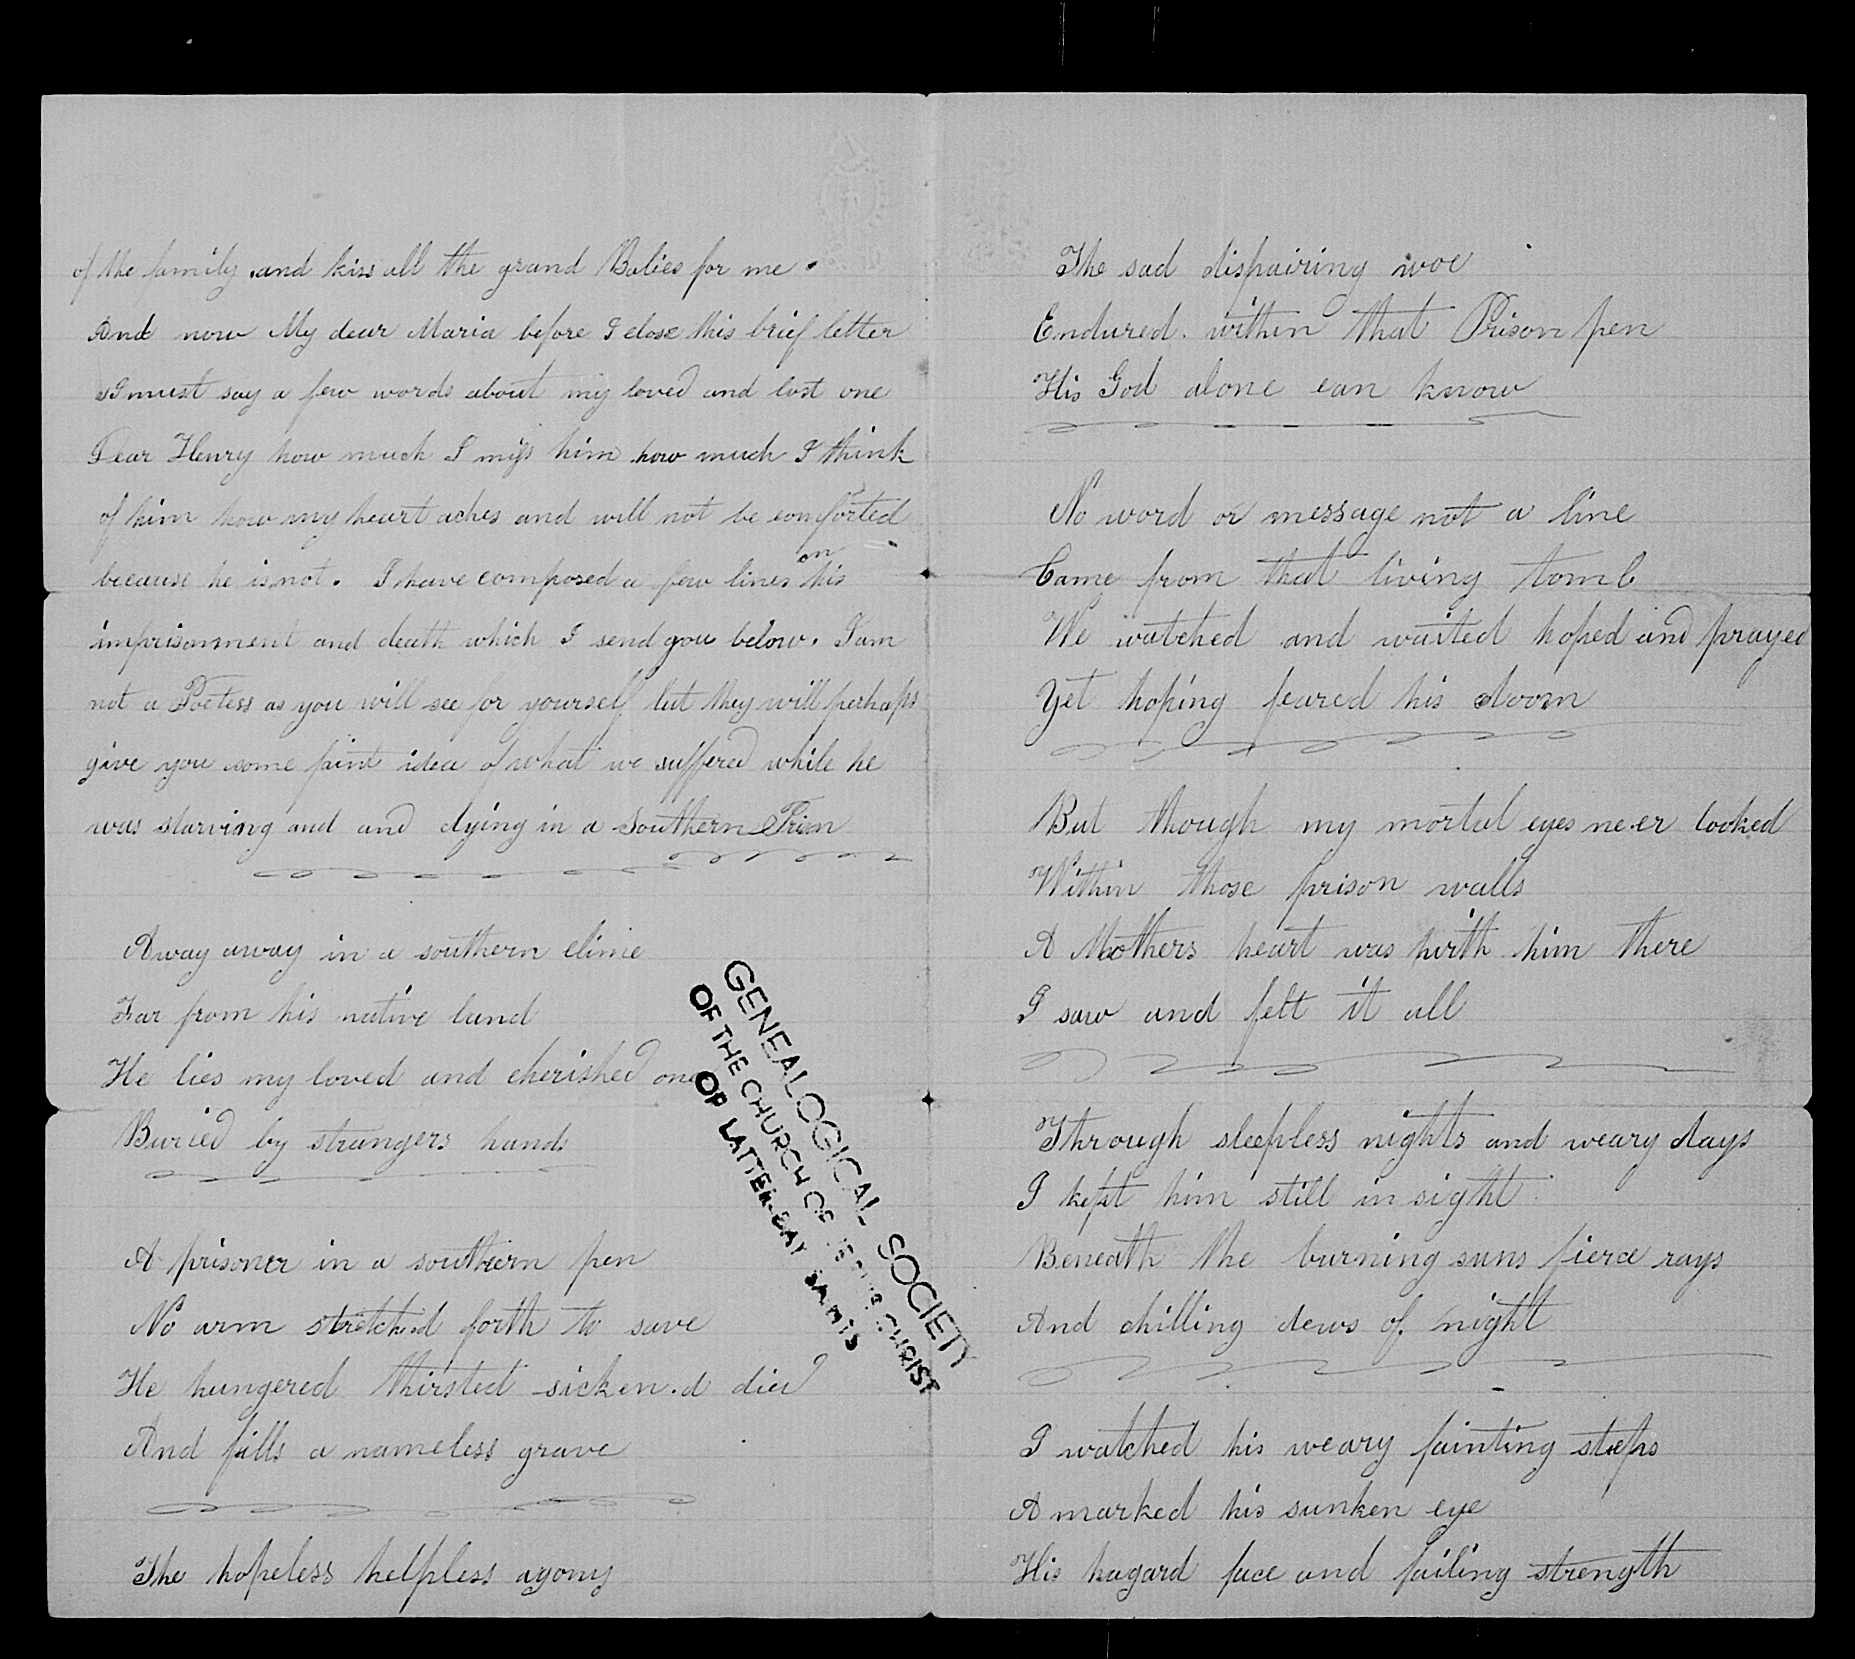 of the family and kiss all the grand Babies for me.
And now My dear Maria before I close this brief letter
I must say a few words about my loved and lost one
Dear Henry how much I miss him how much I think
of him how my heart aches and will not be comforted
because he is not. I have composed a few lines on his
imprisonment and death which I send you below. I am
not a Poetess as you will see for yourself but they will perhaps
give you some faint idea of what we suffered while he
was starving and and dying in a Southern Prison
Away away in a southern clime
Far from his native land
He lies my loved and cherished one
Buried by strangers hands
A prisoner in a southern pen
No arm stretched forth to save
He hungered thirsted sicken.d died
And fills a nameless grave
The hopeless helpless agony
GENEALOGICAL SOCIETY
OF THE CHURCH OF JESUS CHRIST
OF LATTER-DAY SAINTS
The sad dispairing woe
Endured within that Prison pen
His God alone can know
No word or message not a line
Came from that living tomb
We watched and waited hoped and prayed
Yet hoping feared his doom
But though my mortal eyes ne.er looked
Within those prison walls
A Mothers heart was with him there
I saw and felt it all
Through sleepless nights and weary days
I kept him still in sight
Beneath the burning suns fierce rays
And chilling dews of night
I watched his weary fainting steps
A marked his sunken eye
His hagard face and failing strength